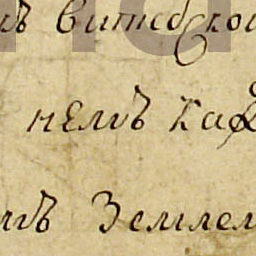 ъ Витебской
немъ каѳ
мъ Землем